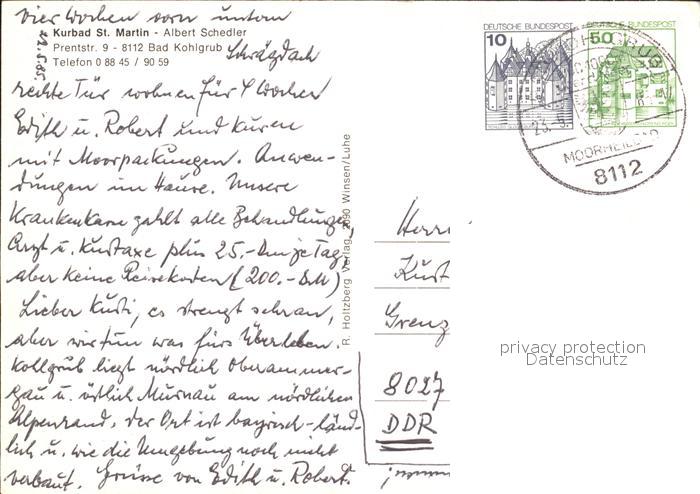 vier Wochen vorn unten
22.5.85.
Kurbad St. Martin - Albert Schedler
Prentstr. 9 - 8112 Bad Kohlgrub
Telefon 0 88 45 / 90 59
Schrägdach
rechte Tür wohnen für 4 Wochen
Edith u. Robert und kuren
mit Moorpackungen. Anwen-
dungen im Hause. Unsere
Krankenkasse zahlt alle Behandlungen,
Arzt u. Kurtaxe plus 25,- DM je Tag,
aber keine Reisekosten (200.- DM)
Lieber Kurti, es strengt sehr an,
aber wir tun was fürs Überleben.
Kohlgrub liegt nördlich Oberammer-
gau u. östlich Murnau am nördlichen
Alpenrand. Der Ort ist bayrisch-länd-
lich u. wie die Umgebung noch nicht
verbaut. Grüsse von Edith u. Robert.
R. Holtzberg Verlag 2090 Winsen/Luhe
DEUTSCHE BUNDESPOST
10
DEUTSCHE BUNDESPOST
50
23.5.
MOORHEILBAD
8112
Herrn
Kurt
Grenz
8027
DDR
privacy protection
Datenschutz